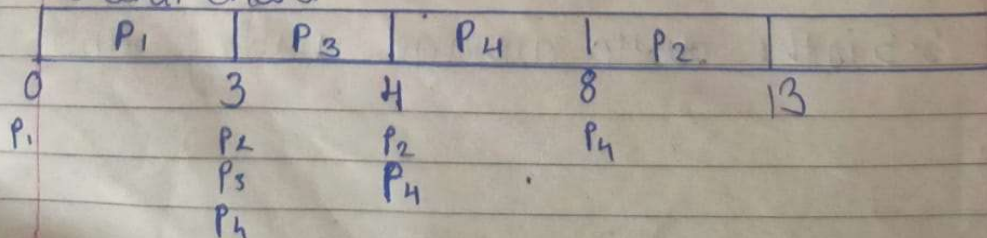 P1 P3 P4 P2
0 3 4 8 13
P1 P2 P2 P4
P3 P4
P4